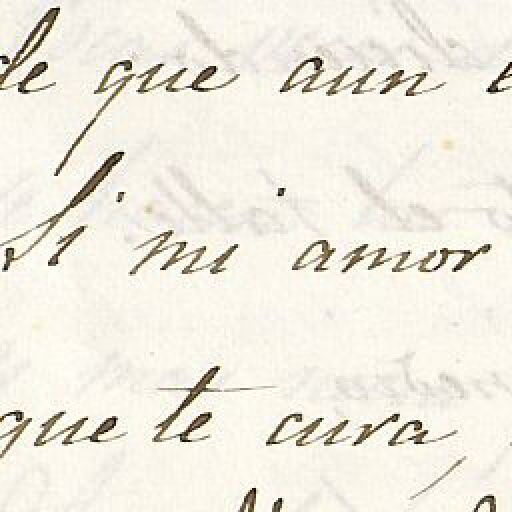 de que aun
Si mi amor
que te cura,